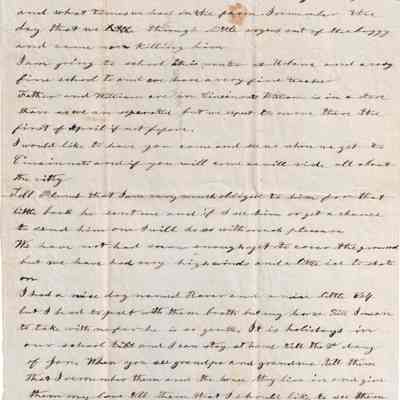 and what times we had in the farm I remember the
day that we through little out of the buggy
and came near killing him
I am going to school this winter at and a very
fine school to and we have a very fine teacher
Father and William are in Cincinnati William is in a store
there as we are seperated but we expect to move there the
first of April if not before.
I would like to have you come and see us when we get to
Cincinnati and if you will come we will ride all about
the city
Tell that I am very much obliged to him for that
little book he sent me and if I see him or get a chance
to send him one I will do so with much pleasure
We have not had snow enough yet to cover the ground
but we have had very high winds and a little ice to skate
on
I had a nice dog named Rover and a nice little
but I had to part with them both but my horse Bill I mean
to take with me for he is so gentle, It is holidays in
our school and I can stay at home till the 2 day
of Jan, When you see grandpa and grandma tell them
that I remember them and the house they live in and give
them my love tell them that I should like to see them